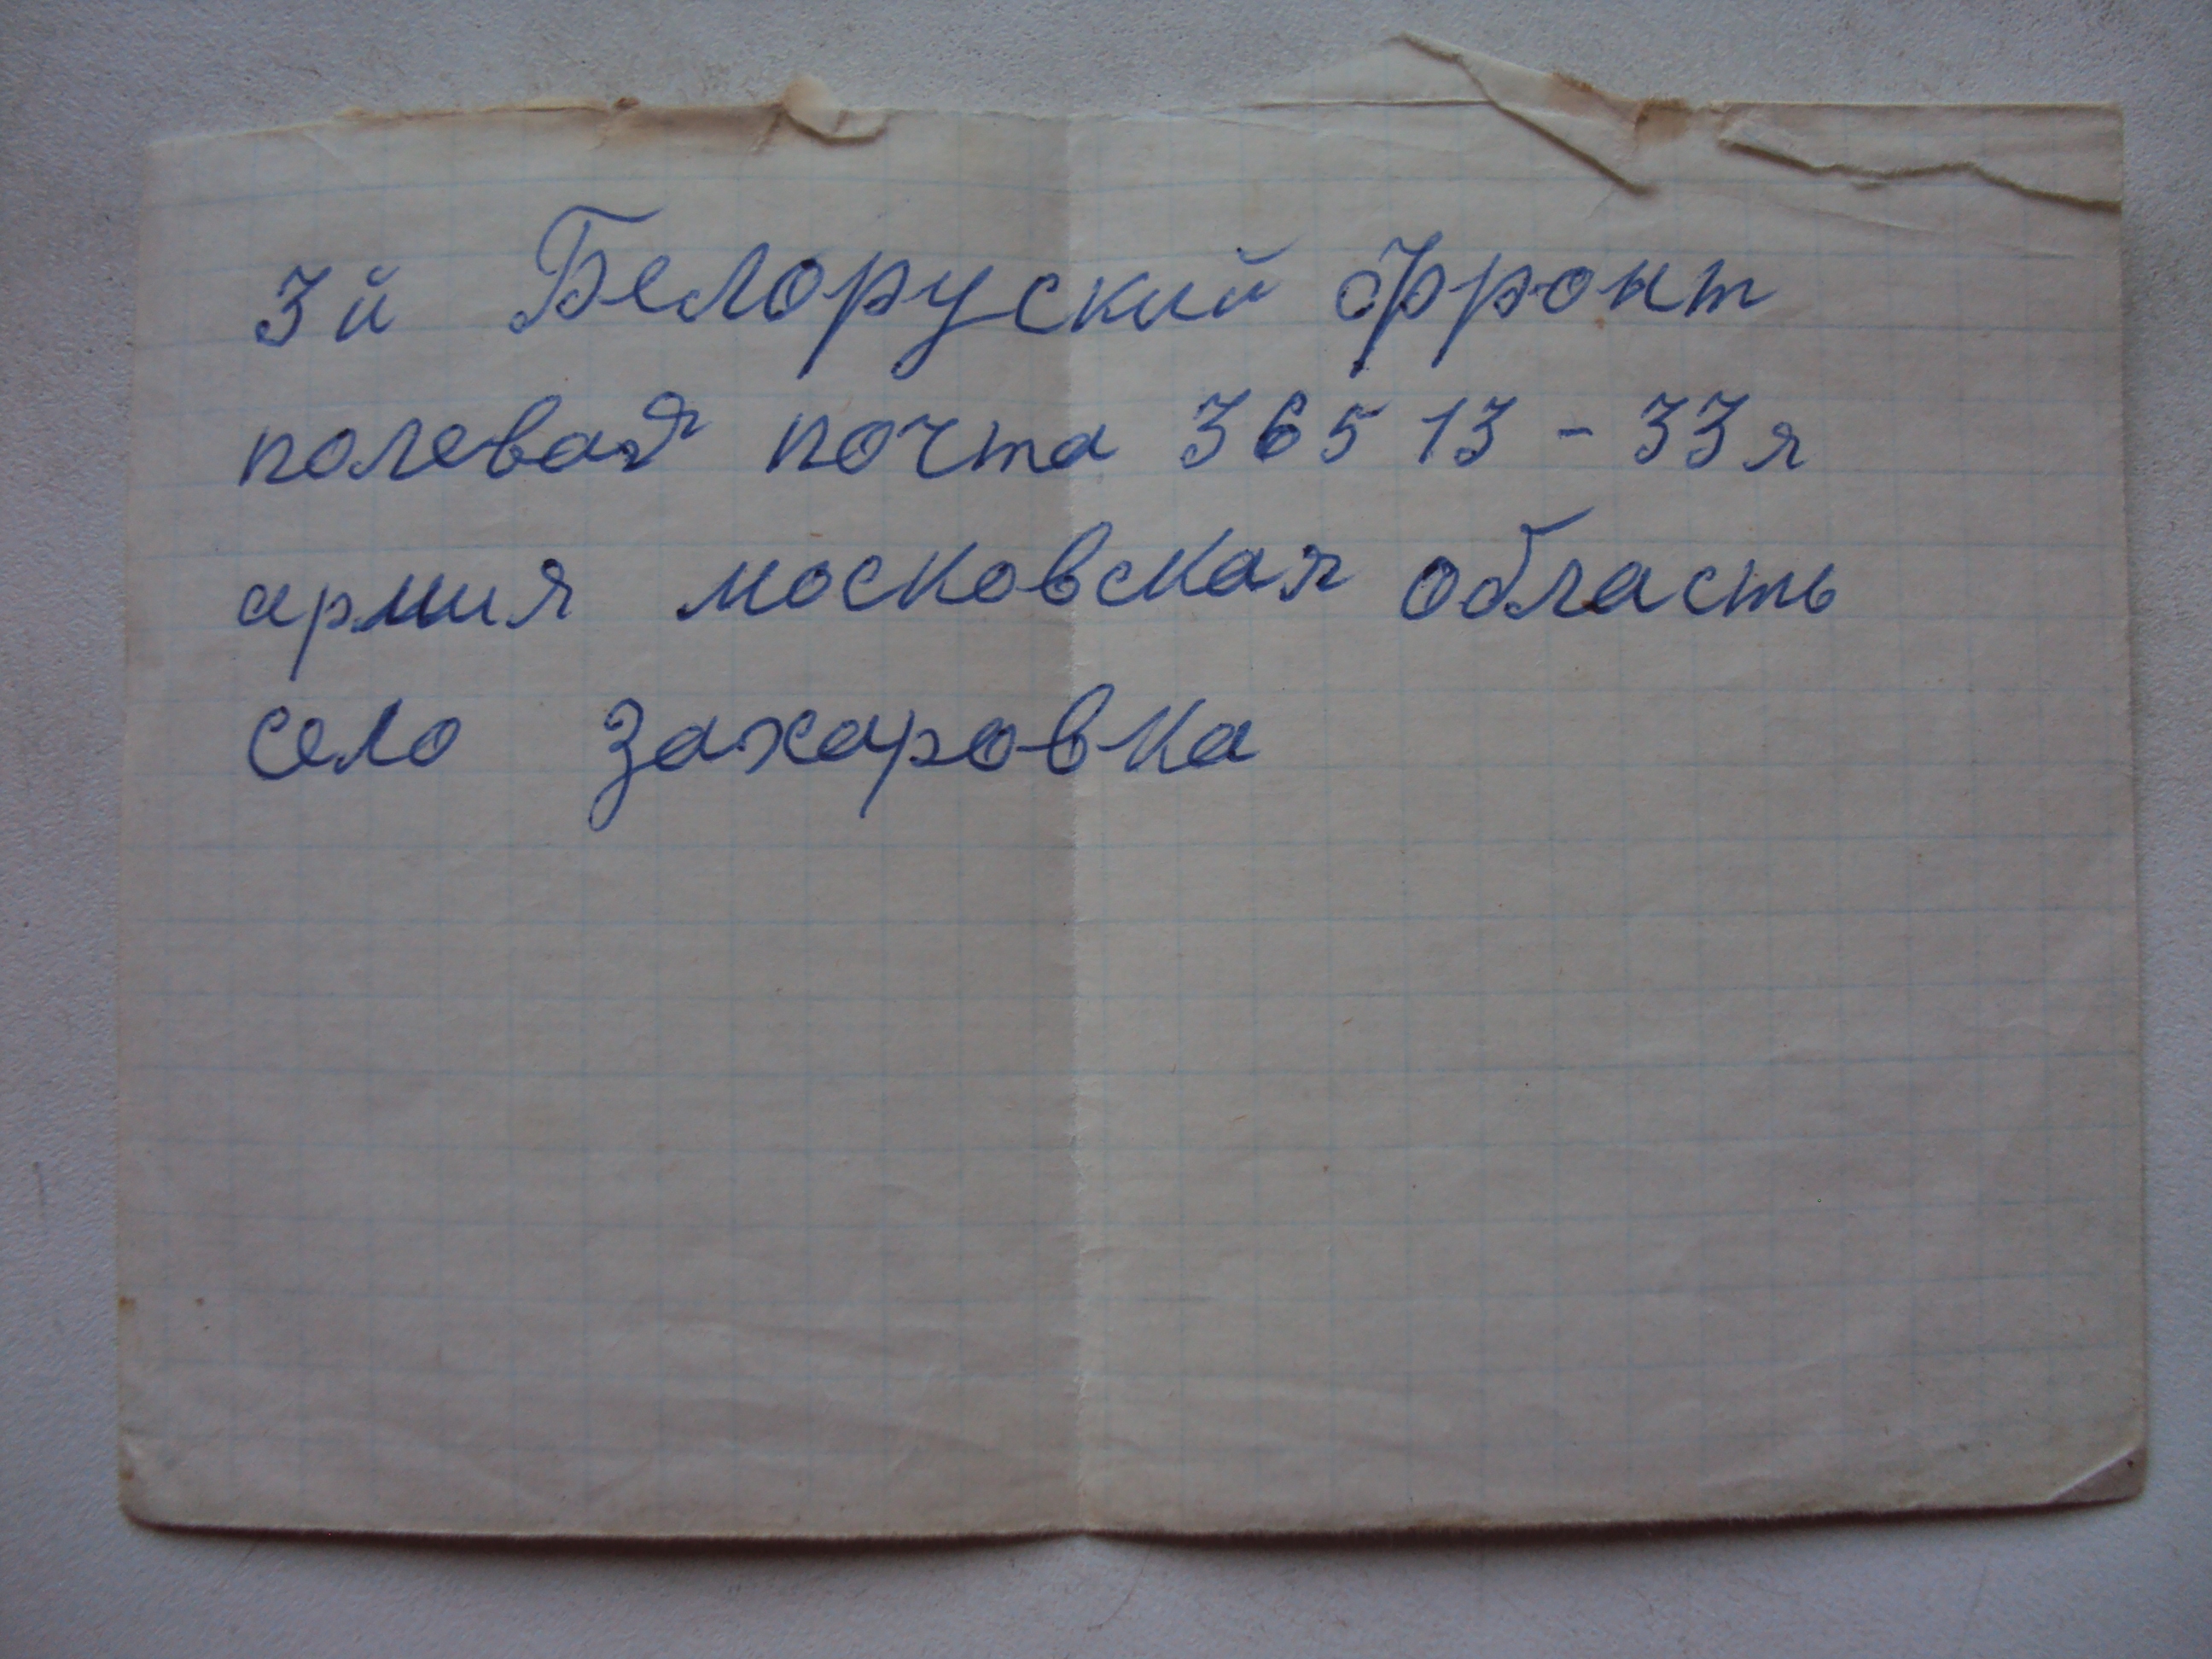 3й Белоруский фронт
полевая почта 36513 - 33я
армия московская область
село Захаровка